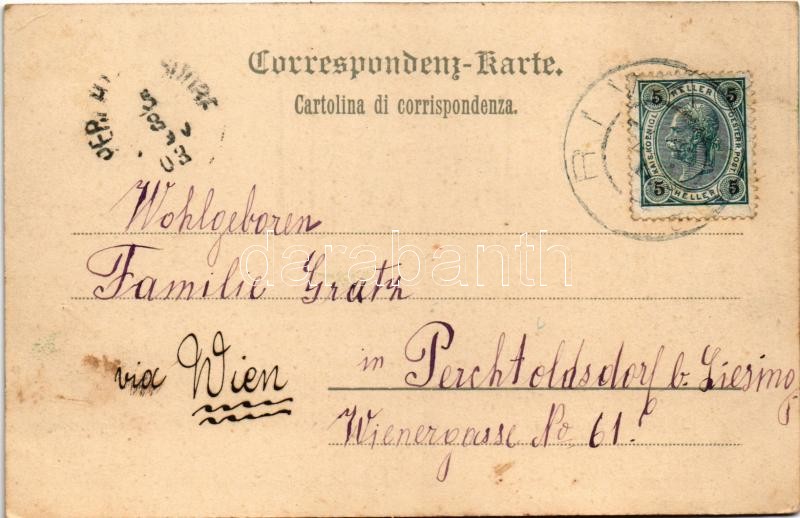 Correspondenz-Karte.
Cartolina di corrispondenza.
5 HELLER 5
KAIS. KOENIGL. OESTERR. POST.
5 HELLER 5
Wohlgeboren
Familie Gratz
via Wien
in Perchtoldsdorf b. Liesing
Wienergasse No. 61.
darabanth